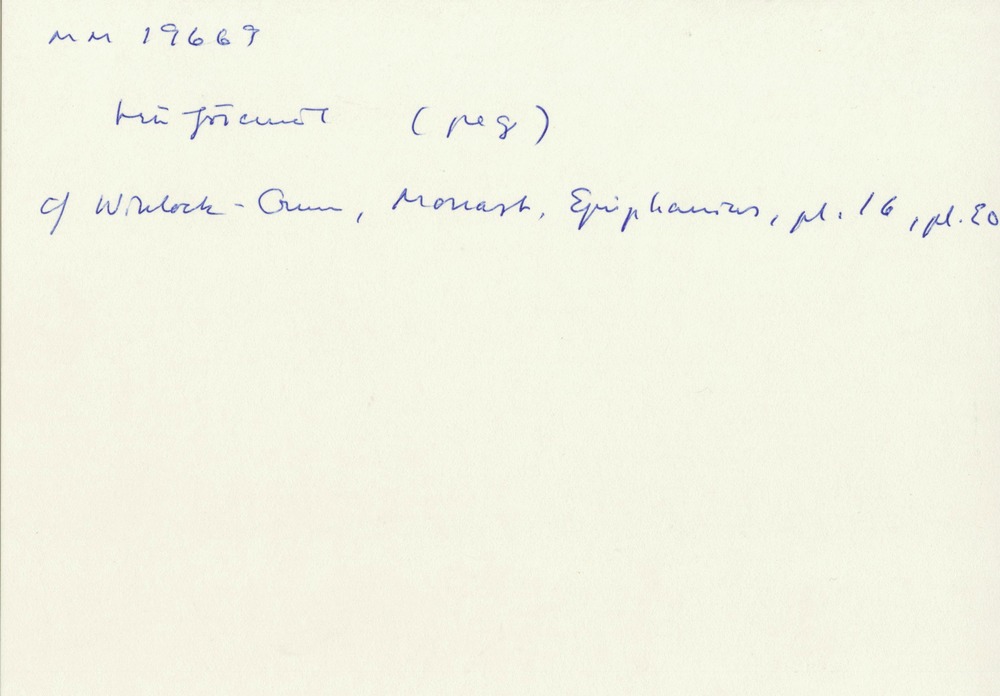 MM 19669
träföremål (peg)
cf Winlock-Crum, Monast. Epiphanius, pl. 16, pl. 20